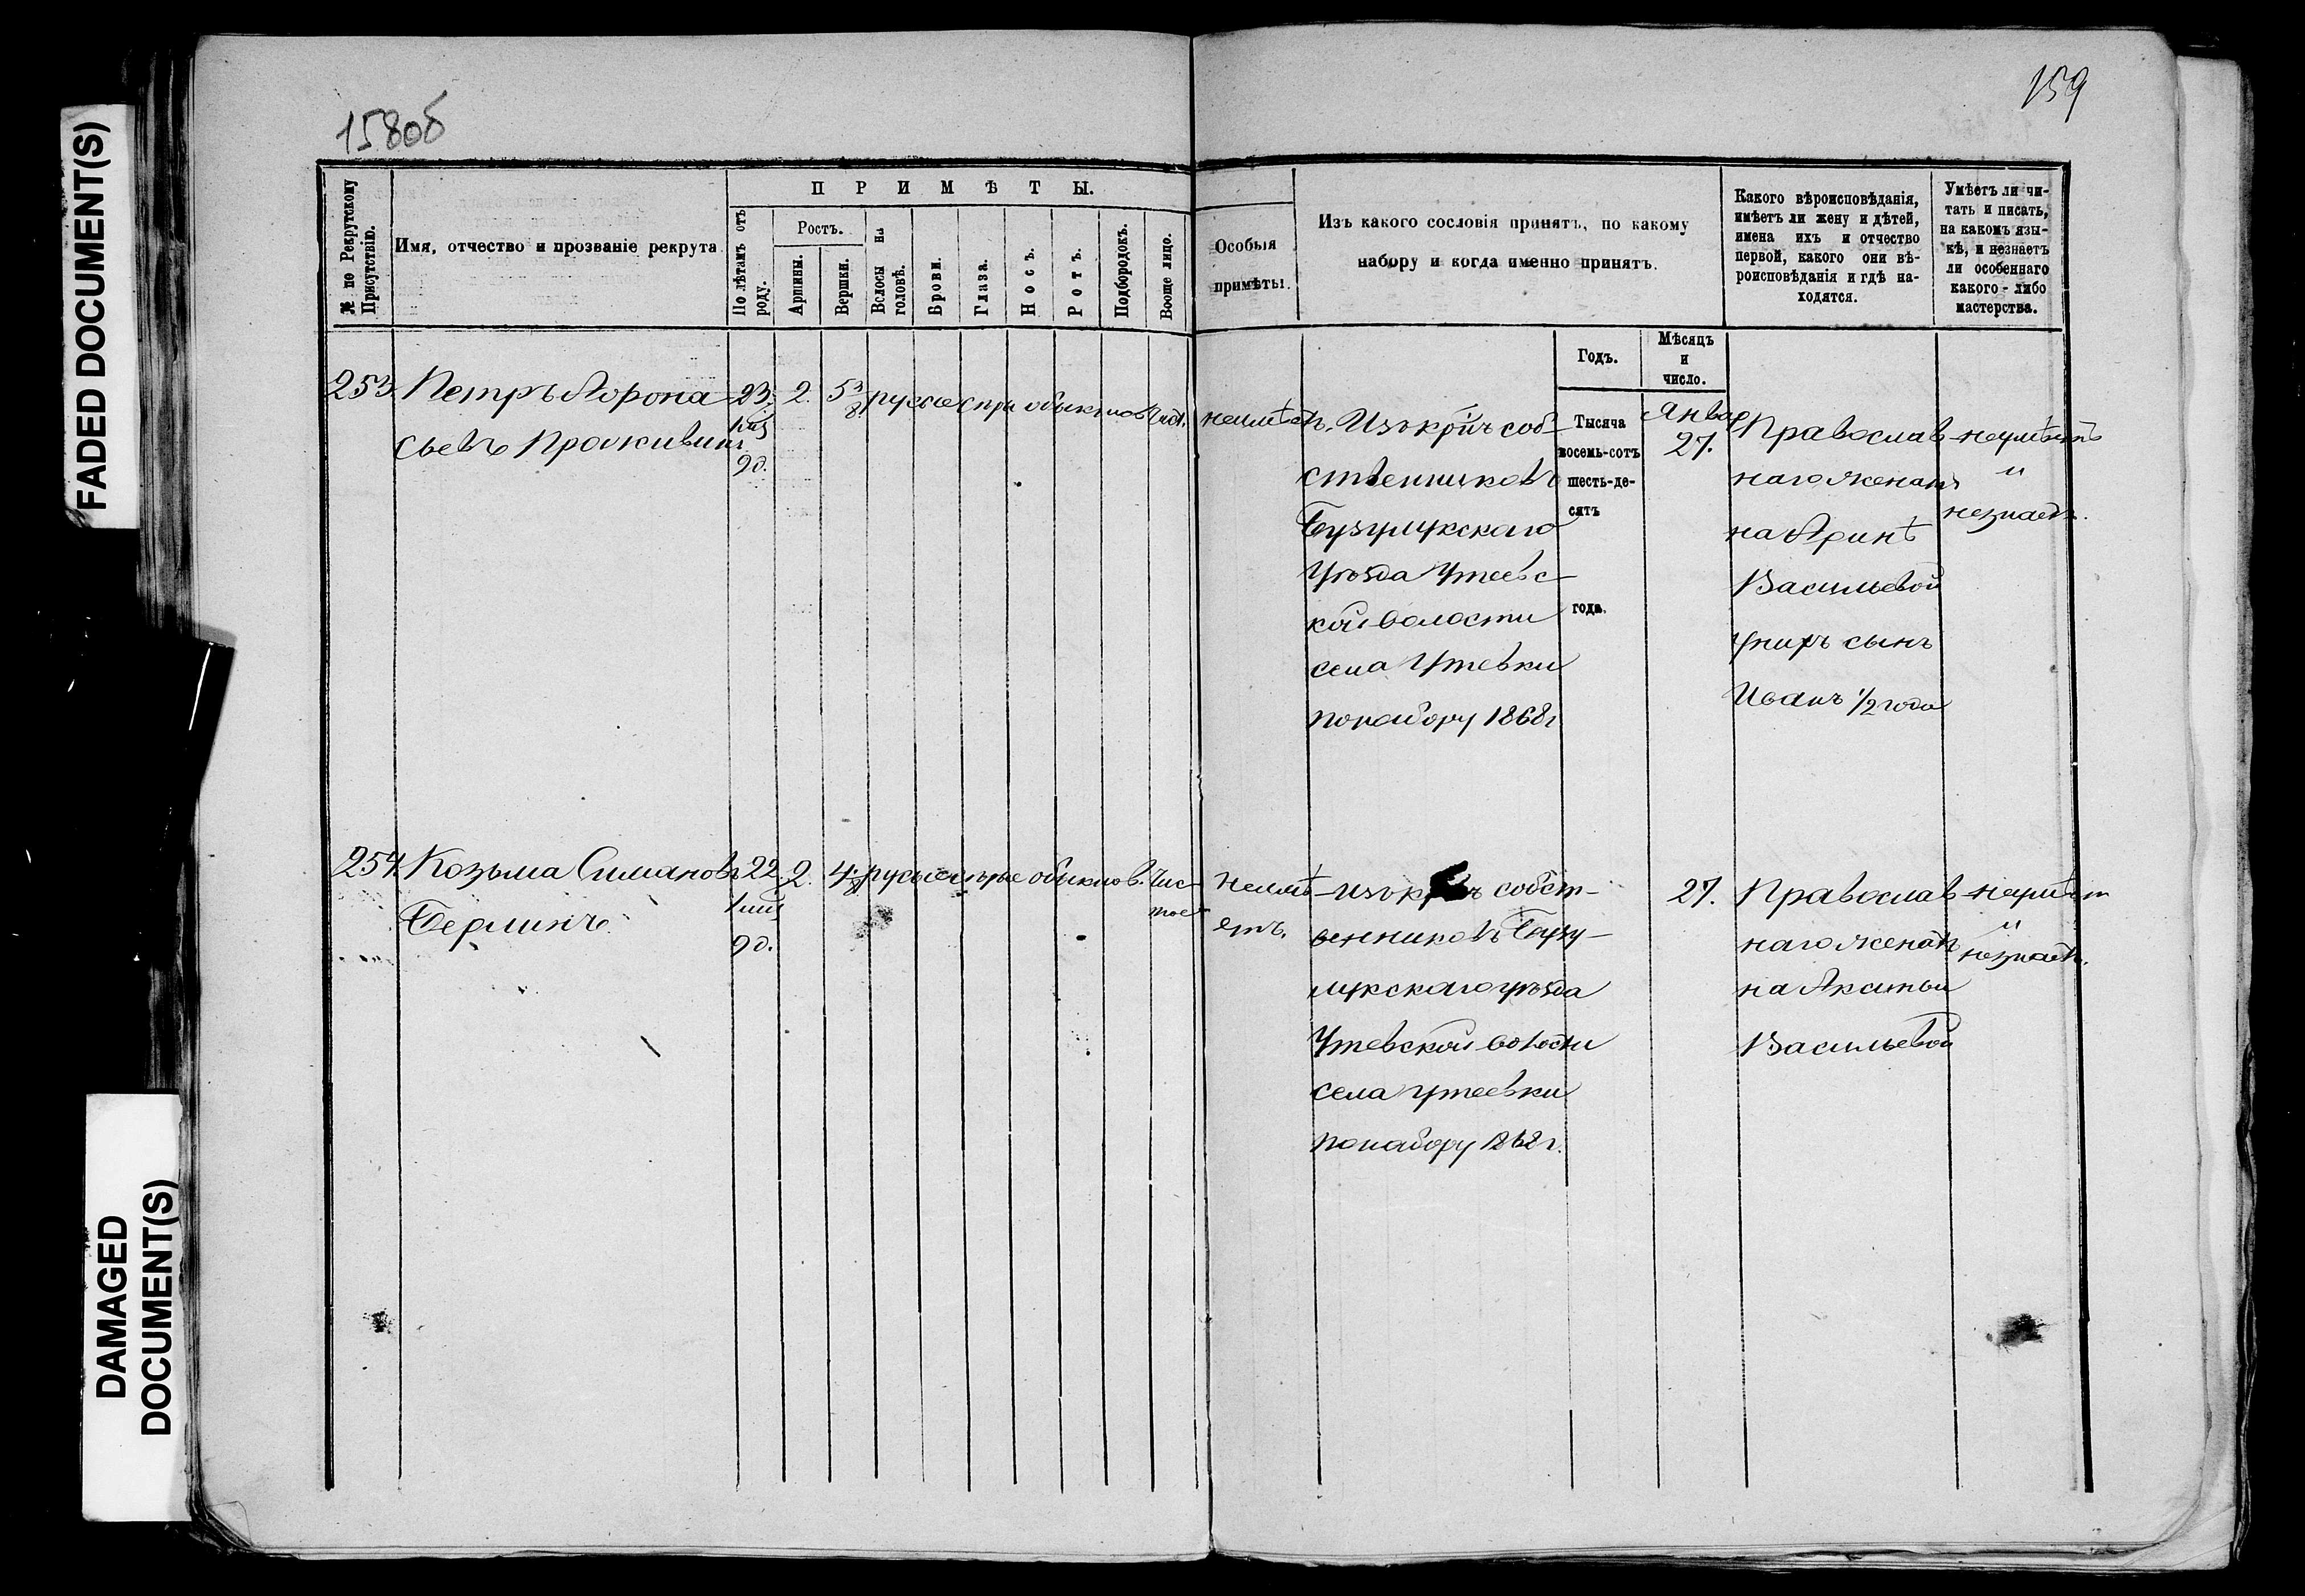 FADED DOCUMENT(S)
DAMAGED
DOCUMENT(S)
158об
159
№ по Рекрутскому
Присутствію.
Имя, отчество и прозваніе рекрута
ПРИМѢТЫ.
По лѣтамъ отъ
роду.
Ростъ.
Аршины.
Вершки.
Волосы на
головѣ.
Брови.
Глаза.
Носъ.
Ротъ.
Подбородокъ.
Вооще лицо.
Особыя
примѣты.
Изъ какого сословія принятъ, по какому
набору и когда именно принятъ.
Какого вѣроисповѣданія,
имѣетъ ли жену и дѣтей,
имена ихъ и отчество
первой, какого они вѣ-
роисповѣданія и гдѣ на-
ходятся.
Умѣетъ ли чи-
тать и писать,
на какомъ язы-
кѣ, и незнаетъ
ли особеннаго
какого-либо
мастерства.
Годъ.
Мѣсяцъ
и
число.
Тысяча
восемь-сотъ
шесть-де-
сятъ
года.
253. Петръ Афона
сьевъ
23
9 д.
2. 5 3/8 русые сѣры обыкнов чист.
неимѣетъ.
Изъ кр нъ соб-
ственниковъ
Бузулукскаго
Уѣзда Утеевс-
кой волости
села Утевки
по набору 1868 г
Январ
27.
Православ
наго женатъ
на Аринѣ
Васильевой
У нихъ сынъ
Иванъ 1/2 года
неумѣетъ
и
незнаетъ.
254. Козьма Симановъ
Берлинъ
22.
9 д.
2. 4 русые сѣрые обыкнов. Чис-
тое
неимѣ-
етъ.
изъ кр ъ собст-
венниковъ Бузу-
лукскаго уѣзда
Утевской волости
села Утеевки
по набору 1868 г.
27.
Православ
наго женатъ
на Аксиньи
Васильевой
неумѣет
и
незнаетъ.